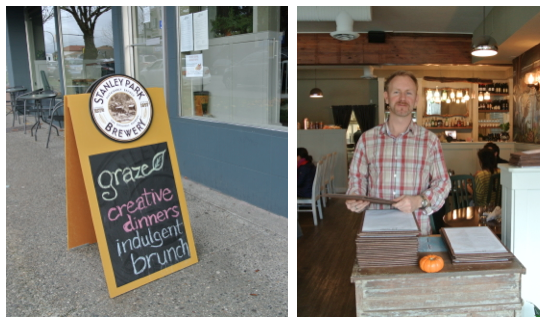 STANLEY PARK
BREWERY
graze
creative
dinners
indulgent
brunch